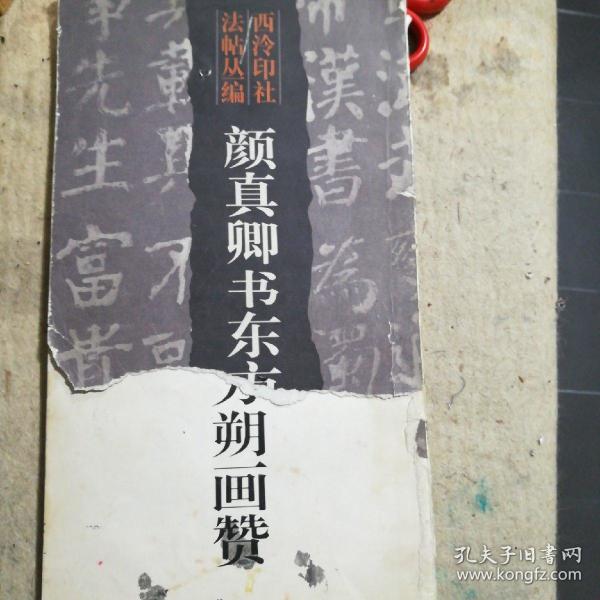 西泠印社
法帖丛编
颜真卿书东方朔画赞
漢書
為
先生
富貴
不
孔夫子旧书网
www.kongfz.com